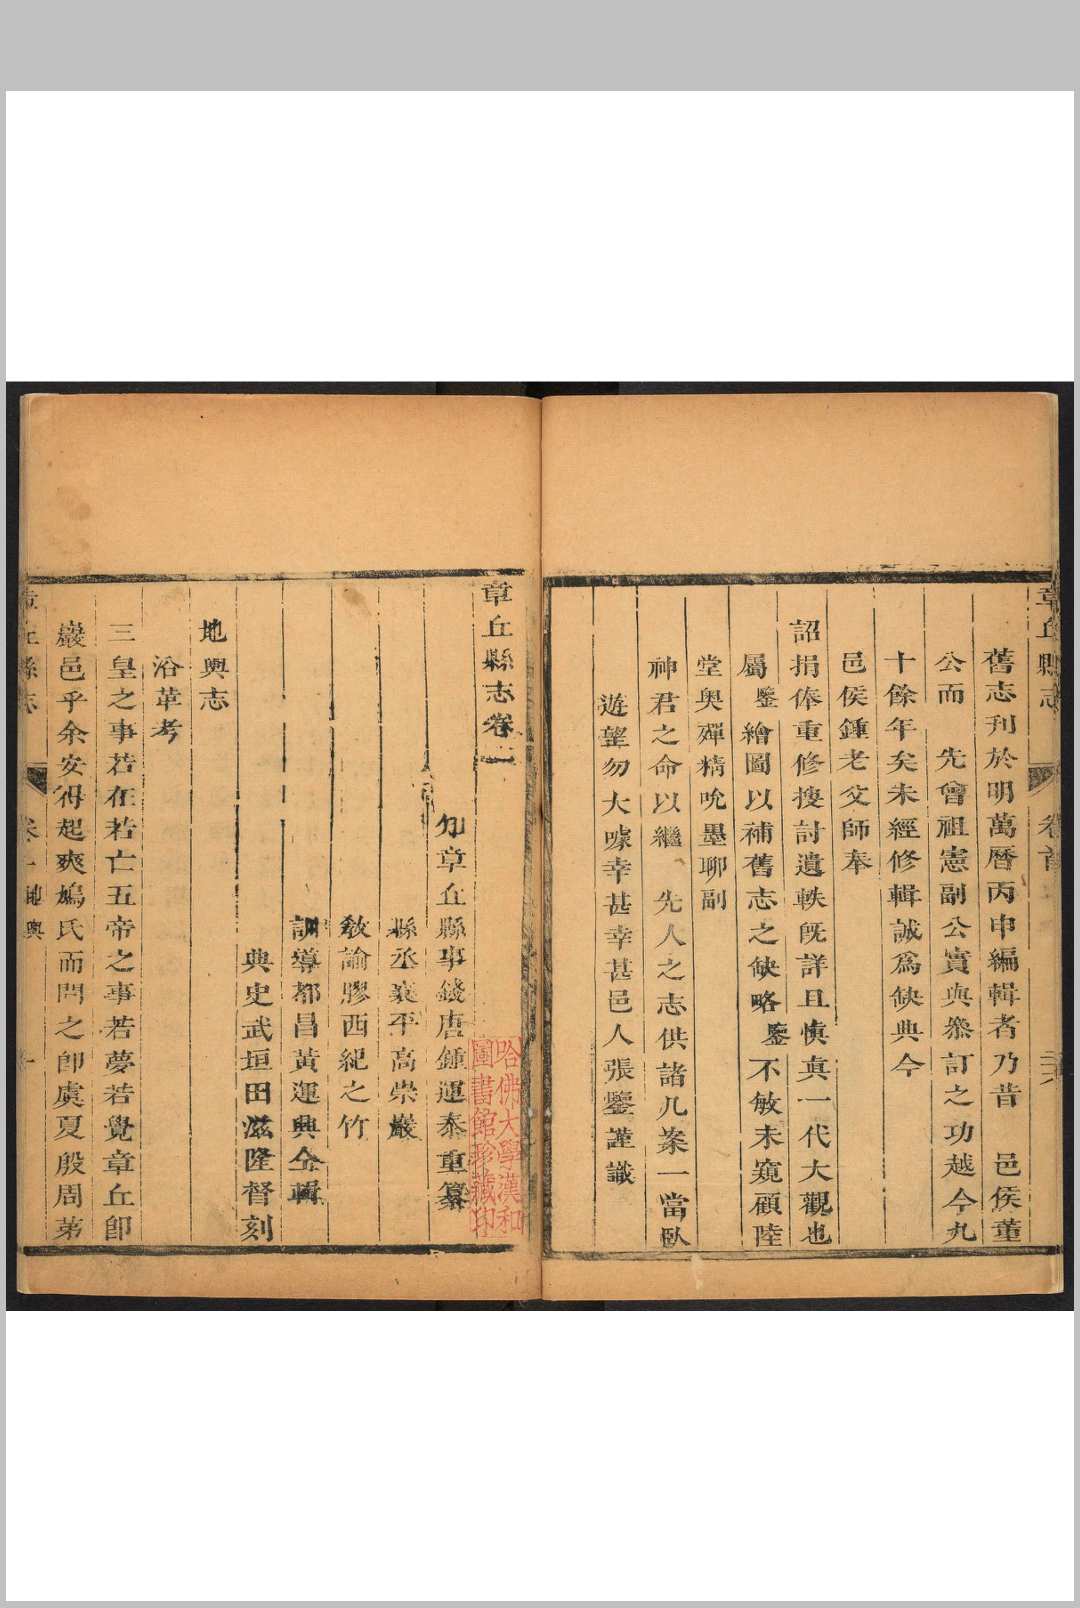 章丘縣志
卷首
舊志刊於明萬曆丙申編輯者乃昔 邑侯董
公而 先曾祖憲副公實與叅訂之功越今九
十餘年矣未經修輯誠爲缺典今
邑侯鍾老父師奉
詔捐俸重修搜討遺軼旣詳且慎真一代大觀也
屬鑒繪圖以補舊志之缺略鑒不敏未窺顧陸
堂奥殫精吮墨聊副
神君之命以繼 先人之志供諸几案一當臥
遊望勿大噱幸甚幸甚邑人張鑒謹識
章丘縣志卷一
知章丘縣事錢唐鍾運泰重纂
縣丞襄平高崇巖
敎諭膠西紀之竹
訓導都昌黃運興仝輯
典史武垣田滋隆督刻
哈佛大學漢和
圖書館珍藏印
地輿志
沿革考
三皇之事若在若亡五帝之事若夢若覺章丘卽
巖邑乎余安得起爽鳩氏而問之卽虞夏殷周苐
章丘縣志
卷一地輿
一